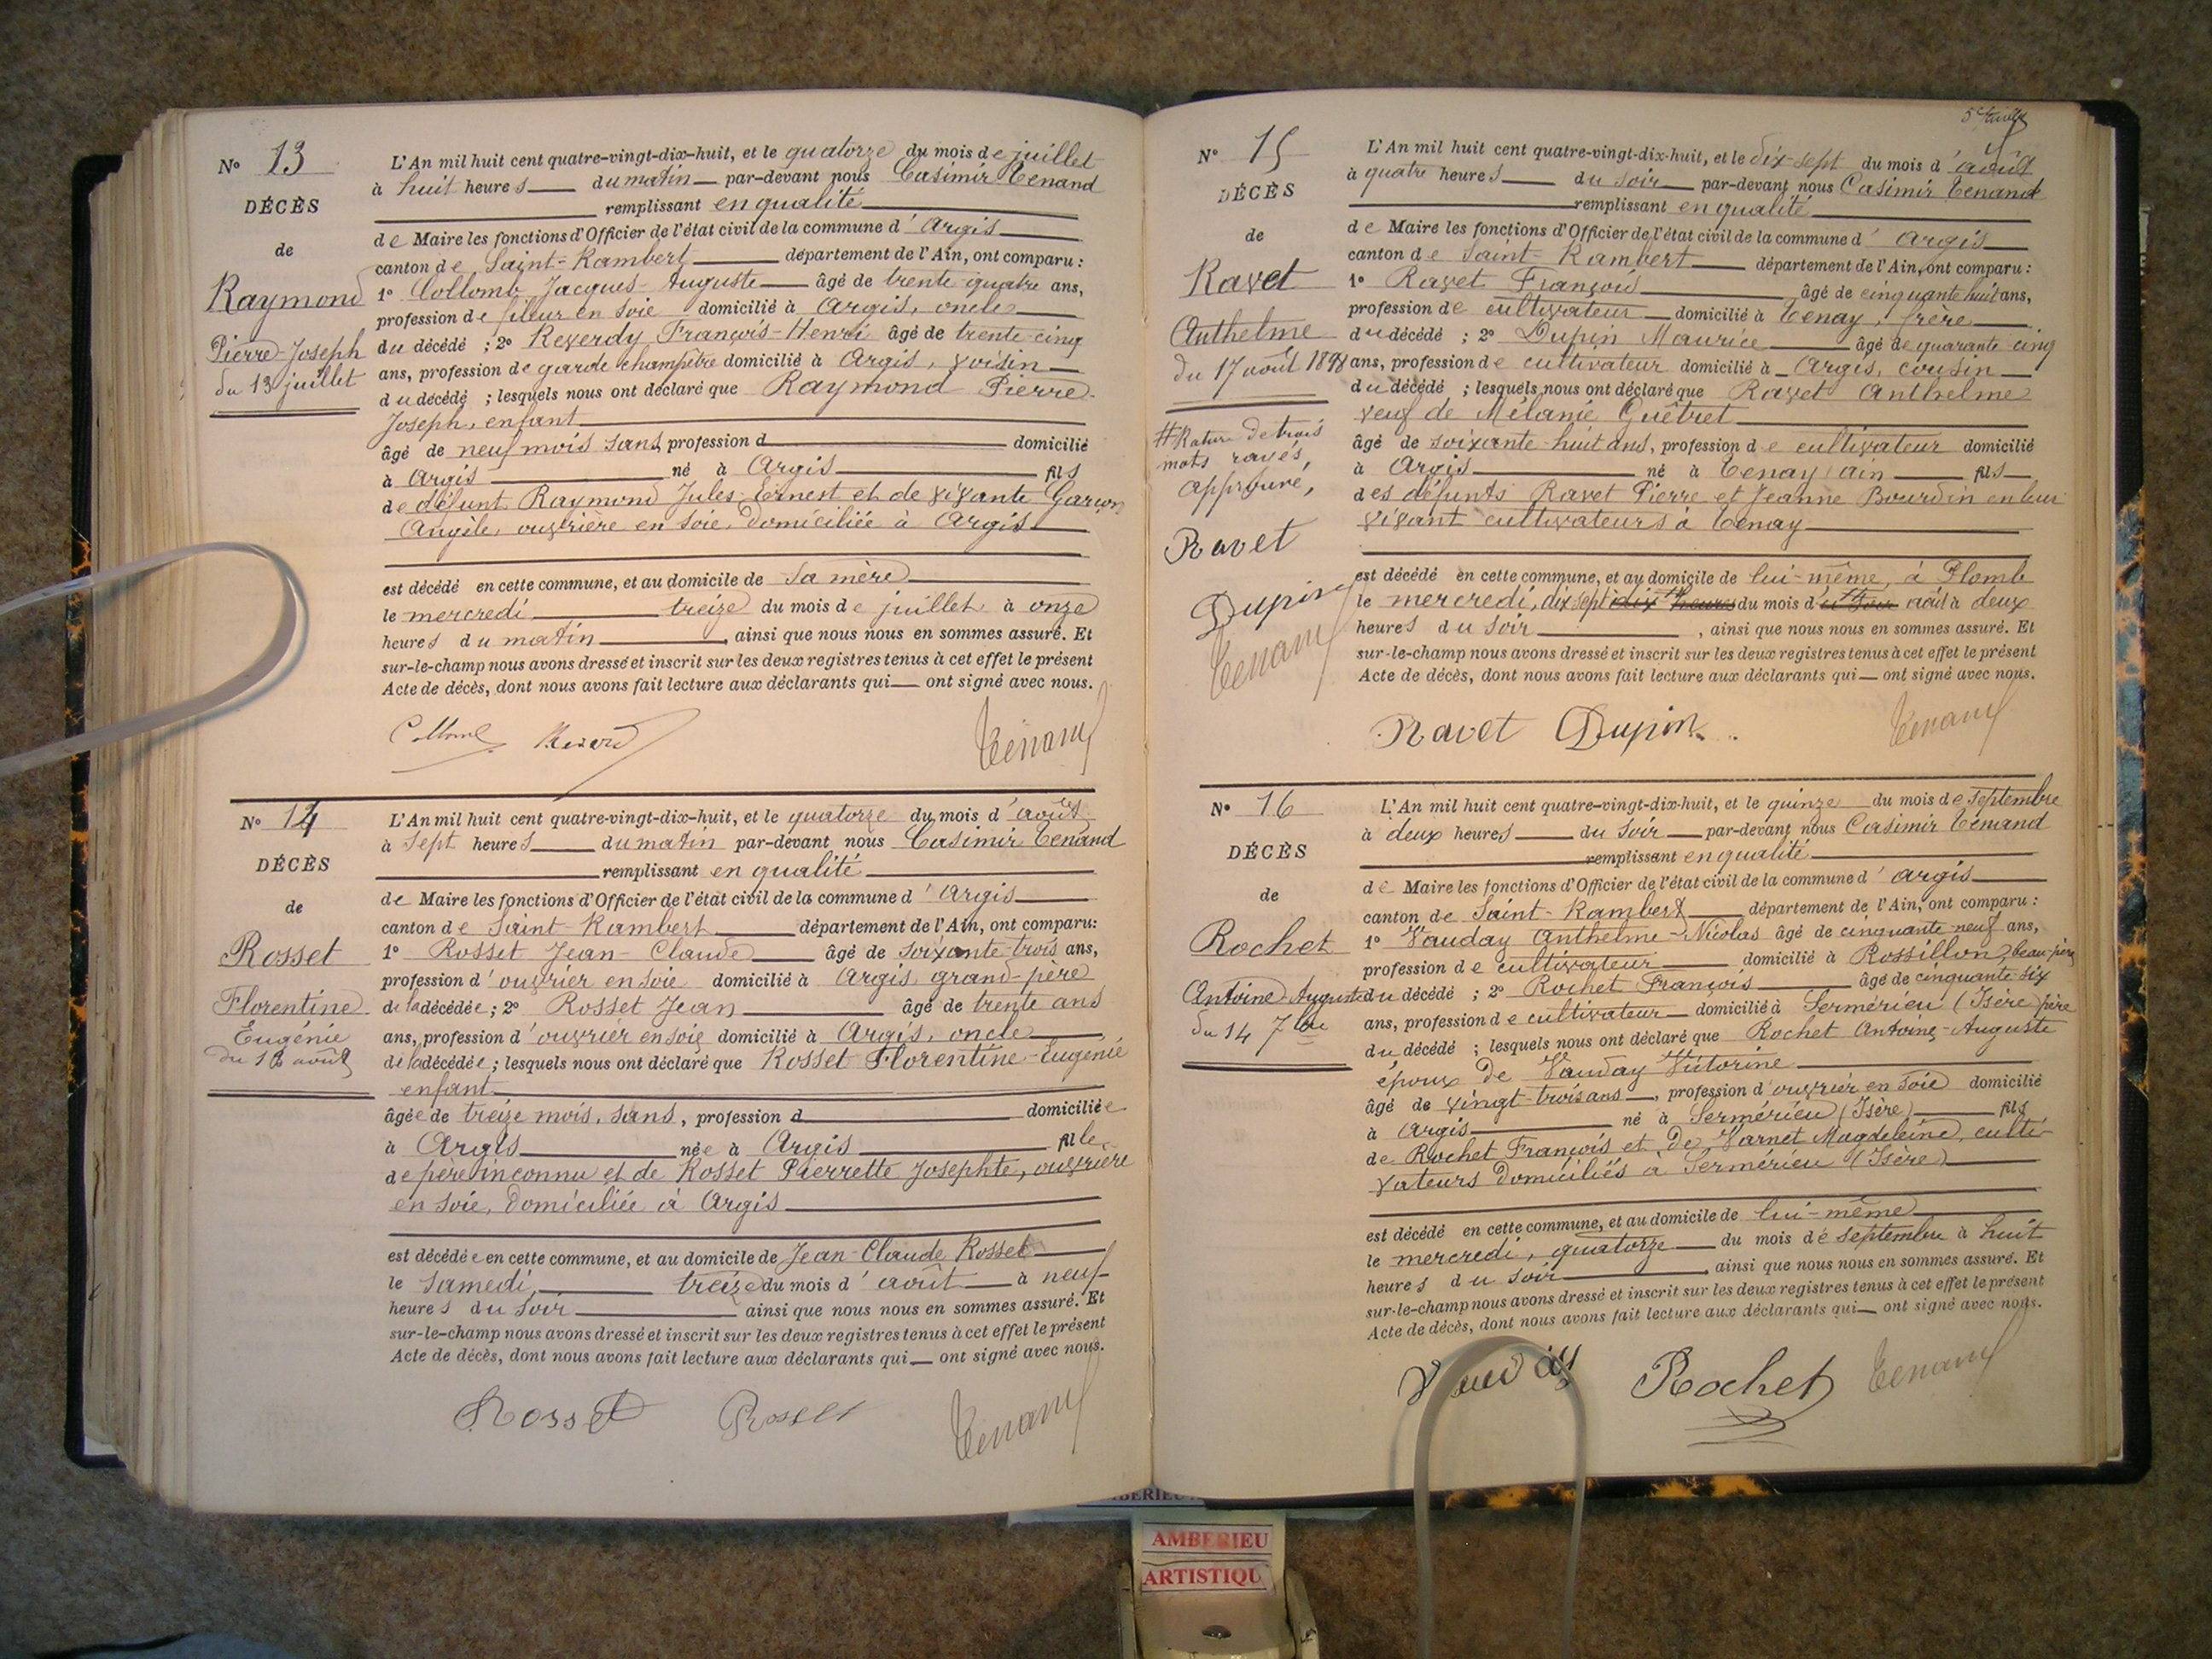 N° 13
DÉCÈS
de
Raymond
Pierre-Joseph
du 13 juillet
L'An mil huit cent quatre-vingt-dix-huit, et le quatorze du mois de juillet
à huit heures du matin par-devant nous Casimir Tenand
remplissant en qualité
de Maire les fonctions d'Officier de l'état civil de la commune d'Argis
canton de Saint-Rambert département de l'Ain, ont comparu :
1° Collomb Jacques-Auguste âgé de trente-quatre ans,
profession de fileur en soie domicilié à Argis, oncle
du décédé ; 2° Reverdy François-Henri âgé de trente-cinq
ans, profession de garde champêtre domicilié à Argis, voisin
du décédé ; lesquels nous ont déclaré que Raymond Pierre-
Joseph, enfant
âgé de neuf mois sans, profession d domicilié
à Argis né à Argis fils
de défunt Raymond Jules-Ernest et de vivante Garçon
Angèle, ouvrière en soie, domiciliée à Argis
est décédé en cette commune, et au domicile de sa mère
le mercredi treize du mois de juillet à onze
heures du matin, ainsi que nous nous en sommes assuré. Et
sur-le-champ nous avons dressé et inscrit sur les deux registres tenus à cet effet le présent
Acte de décès, dont nous avons fait lecture aux déclarants qui ont signé avec nous.
Tenand
N° 14
DÉCÈS
de
Rosset
Florentine
Eugénie
du 13 août
L'An mil huit cent quatre-vingt-dix-huit, et le quatorze du mois d'août
à sept heures du matin par-devant nous Casimir Tenand
remplissant en qualité
de Maire les fonctions d'Officier de l'état civil de la commune d'Argis
canton de Saint-Rambert département de l'Ain, ont comparu:
1° Rosset Jean-Claude âgé de soixante-trois ans,
profession d'ouvrier en soie domicilié à Argis, grand-père
de la décédée ; 2° Rosset Jean âgé de trente ans
ans, profession d'ouvrier en soie domicilié à Argis, oncle
de la décédée ; lesquels nous ont déclaré que Rosset Florentine-Eugénie
enfant
âgée de treize mois, sans, profession d domiciliée
à Argis née à Argis fille
de père inconnu et de Rosset Pierrette Josephte, ouvrière
en soie, domiciliée à Argis
est décédée en cette commune, et au domicile de Jean-Claude Rosset
le samedi, treize du mois d'août à neuf
heures du soir ainsi que nous nous en sommes assuré. Et
sur-le-champ nous avons dressé et inscrit sur les deux registres tenus à cet effet le présent
Acte de décès, dont nous avons fait lecture aux déclarants qui ont signé avec nous.
Rosset Rosset Tenand
N° 15
DÉCÈS
de
Ravet
Anthelme
du 17 août 1898
# Rature de trois
mots rayés,
approuvé,
Ravet
Dupin
Tenand
L'An mil huit cent quatre-vingt-dix-huit, et le dix-sept du mois d'août
à quatre heures du soir par-devant nous Casimir Tenand
remplissant en qualité
de Maire les fonctions d'Officier de l'état civil de la commune d'Argis
canton de Saint-Rambert département de l'Ain, ont comparu :
1° Ravet François âgé de cinquante huit ans,
profession de cultivateur domicilié à Tenay, frère
du décédé ; 2° Dupin Maurice âgé de quarante cinq
ans, profession de cultivateur domicilié à Argis, cousin
du décédé ; lesquels nous ont déclaré que Ravet Anthelme
veuf de Mélanie Guêtret
âgé de soixante-huit ans, profession de cultivateur domicilié
à Argis né à Tenay, ain fils
des défunts Ravet Pierre et Jeanne Bourdin en leur
vivant cultivateurs à Tenay
est décédé en cette commune, et au domicile de lui-même, à Plomb
le mercredi, dix sept dix heures du mois d'août à deux
heures du soir, ainsi que nous nous en sommes assuré. Et
sur-le-champ nous avons dressé et inscrit sur les deux registres tenus à cet effet le présent
Acte de décès, dont nous avons fait lecture aux déclarants qui ont signé avec nous.
Ravet Dupin Tenand
N° 16
DÉCÈS
de
Rochet
Antoine Auguste
du 14 7bre
L'An mil huit cent quatre-vingt-dix-huit, et le quinze du mois de septembre
à deux heures du soir par-devant nous Casimir Tenand
remplissant en qualité
de Maire les fonctions d'Officier de l'état civil de la commune d'Argis
canton de Saint-Rambert département de l'Ain, ont comparu :
1° Vauday Anthelme-Nicolas âgé de cinquante-neuf ans,
profession de cultivateur domicilié à Rossillon, beau-père
du décédé ; 2° Rochet François âgé de cinquante six
ans, profession de cultivateur domicilié à Sermérieu (Isère) père
du décédé ; lesquels nous ont déclaré que Rochet Antoine-Auguste
époux de Vauday Victorine
âgé de vingt-trois ans, profession d'ouvrier en soie domicilié
à Argis né à Sermérieu (Isère) fils
de Rochet François et de Varnet Magdeleine, culti-
vateurs domiciliés à Sermérieu (Isère)
est décédé en cette commune, et au domicile de lui-même
le mercredi, quatorze du mois de septembre à huit
heures du soir, ainsi que nous nous en sommes assuré. Et
sur-le-champ nous avons dressé et inscrit sur les deux registres tenus à cet effet le présent
Acte de décès, dont nous avons fait lecture aux déclarants qui ont signé avec nous.
Vauday Rochet Tenand
AMBERIEU
ARTISTIQU